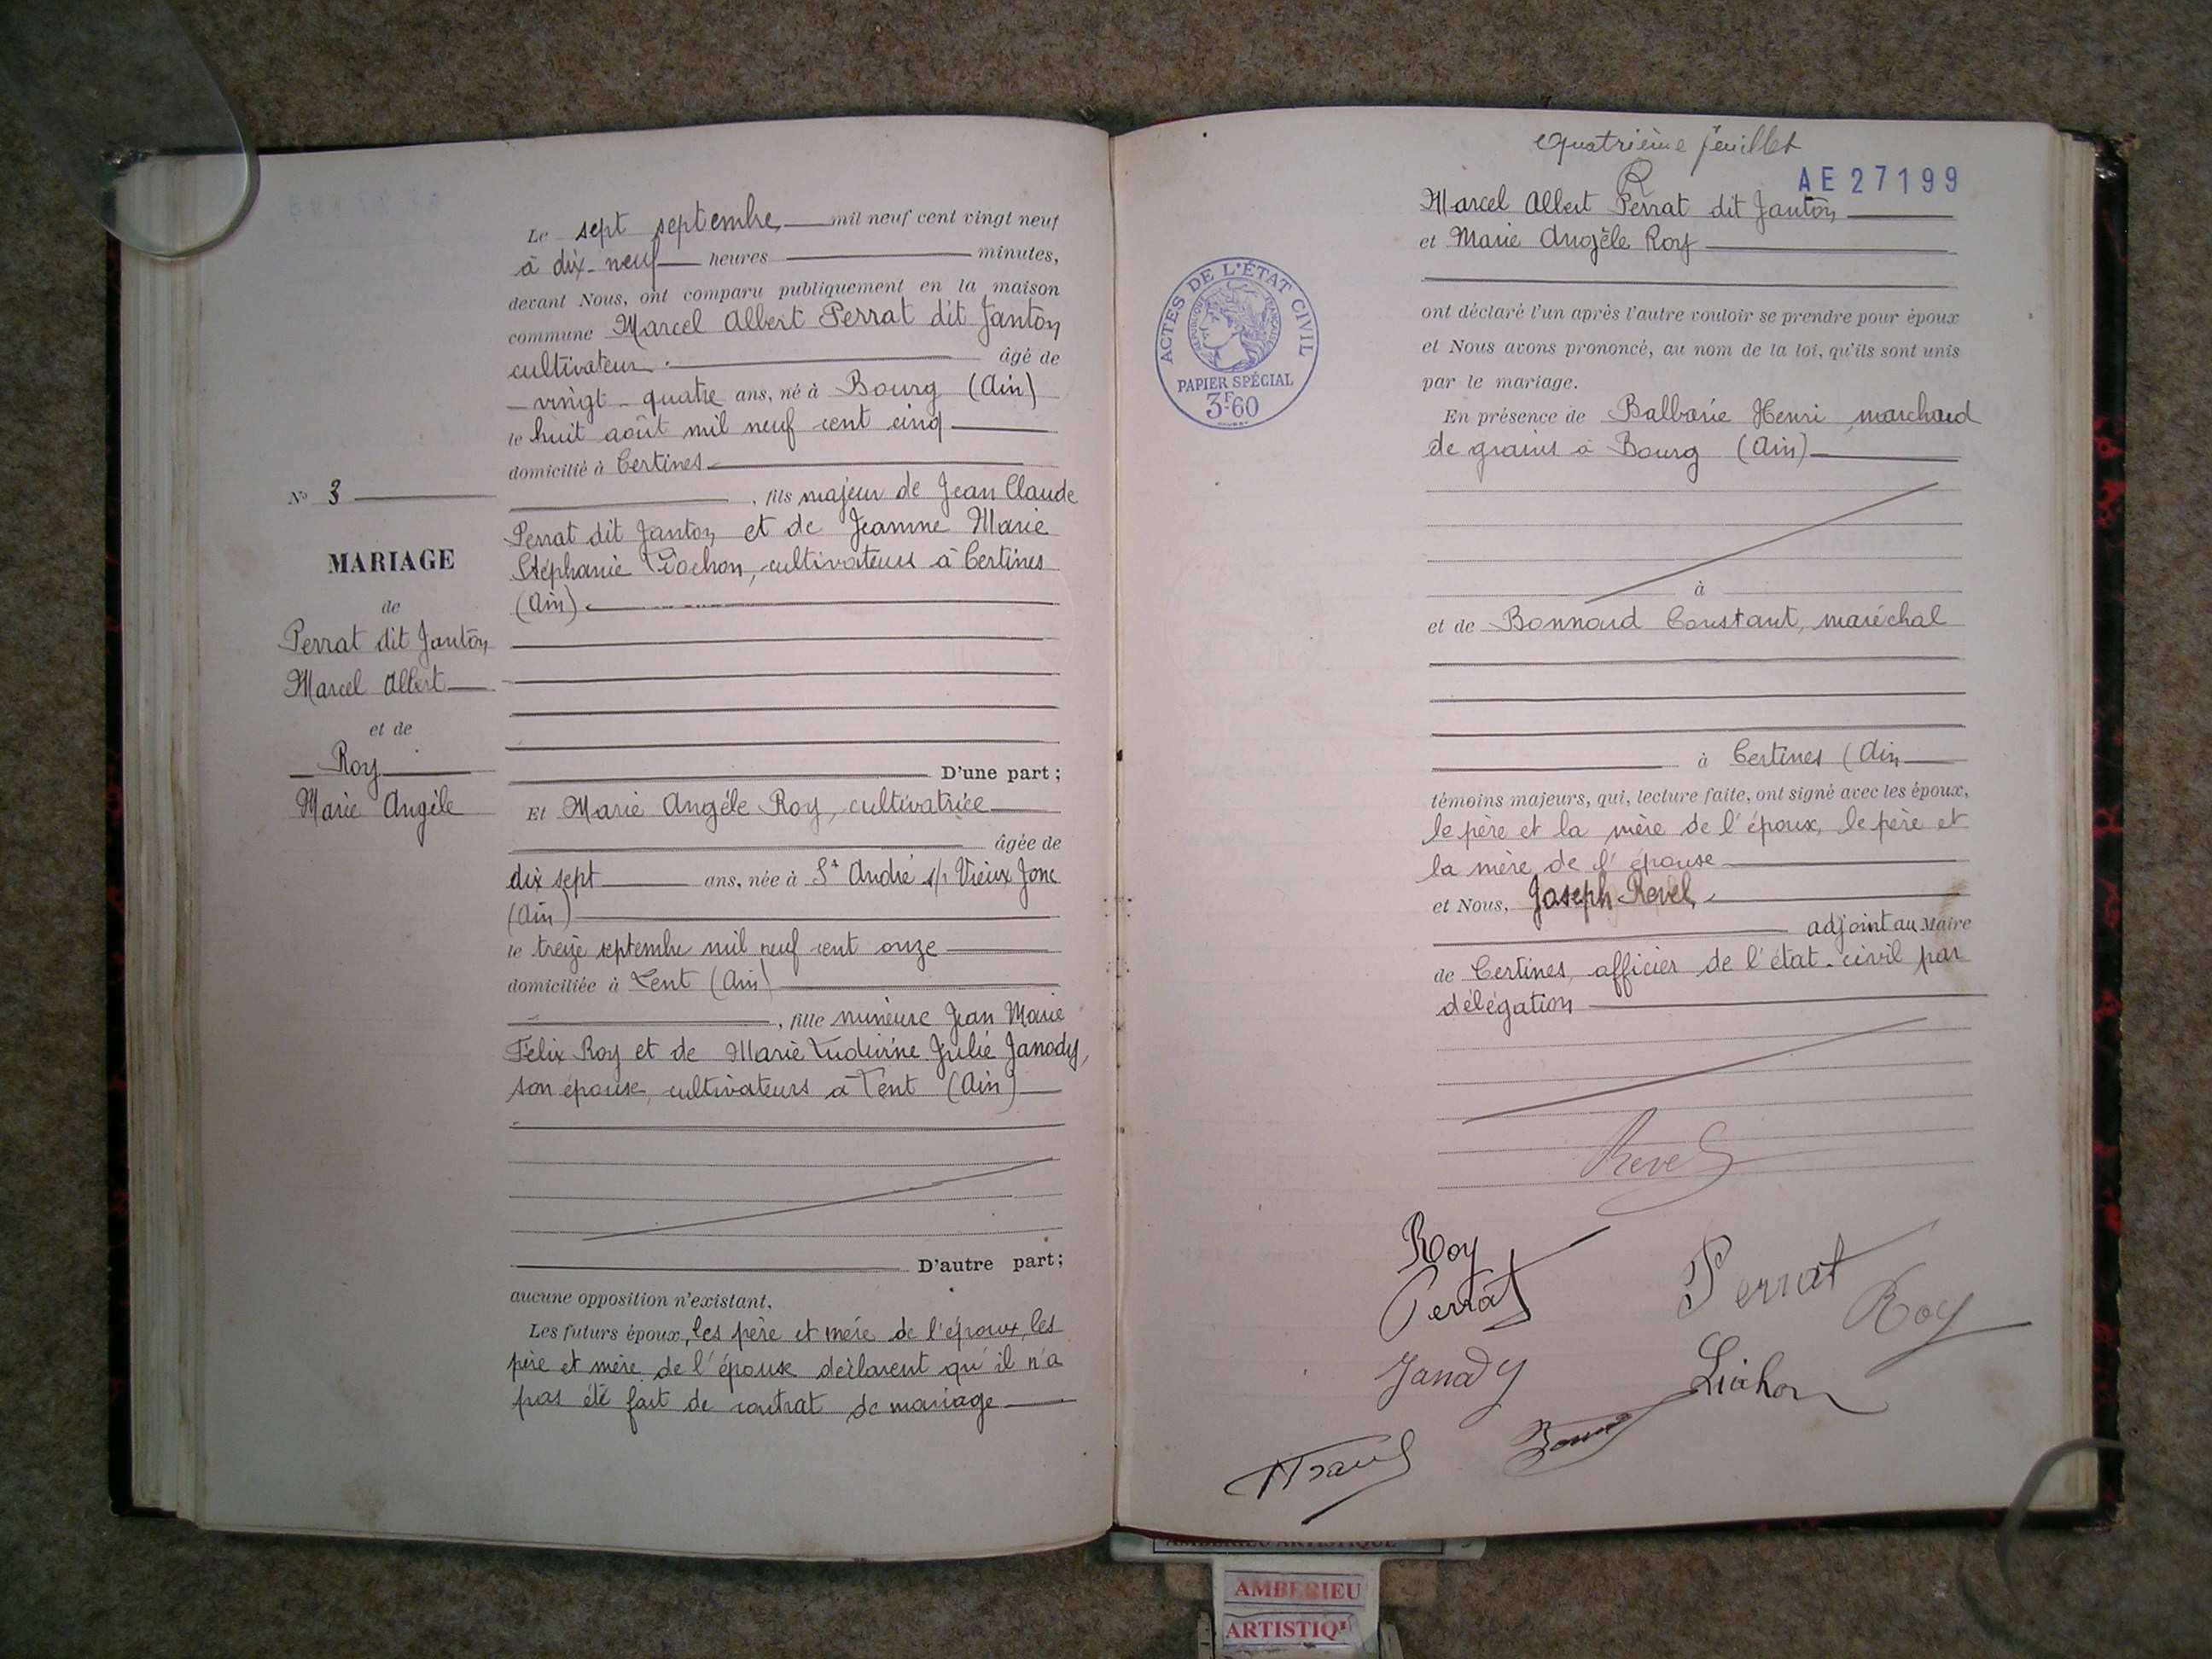 Le sept septembre, mil neuf cent vingt neuf
à dix-neuf heures minutes,
devant Nous, ont comparu publiquement en la maison
commune Marcel Albert Perrat dit Janton
cultivateur âgé de
vingt-quatre ans, né à Bourg (Ain)
le huit août mil neuf cent cinq
domicilié à Certines
, fils majeur de Jean Claude
Perrat dit Janton et de Jeanne Marie
Stéphanie Liochon, cultivateurs à Certines
(Ain)
D'une part;
Et Marie Angèle Roy, cultivatrice
âgée de
dix sept ans, née à St André s/ Vieux Jonc
(Ain)
le treize septembre mil neuf cent onze
domiciliée à Lent (Ain)
, fille mineure Jean Marie
Félix Roy et de Marie Julie Janody,
son épouse, cultivateurs à Lent (Ain)
D'autre part;
aucune opposition n'existant.
Les futurs époux, les père et mère de l'époux, les
père et mère de l'épouse déclarent qu'il n'a
pas été fait de contrat de mariage
No 3
MARIAGE
de
Perrat dit Janton
Marcel Albert
et de
Roy
Marie Angèle
quatrième feuillet
AE 27199
Marcel Albert Perrat dit Janton
et Marie Angèle Roy
ACTES DE L'ÉTAT CIVIL
RÉPUBLIQUE FRANÇAISE
PAPIER SPÉCIAL
3F60
ont déclaré l'un après l'autre vouloir se prendre pour époux
et Nous avons prononcé, au nom de la loi, qu'ils sont unis
par le mariage.
En présence de Henri, marchand
de grains à Bourg (Ain)
à
et de Bonnard Constant, maréchal
à Certines (Ain
témoins majeurs, qui, lecture faite, ont signé avec les époux,
le père et la mère de l'époux, le père et
la mère de l'épouse
et Nous, Joseph Revel,
adjoint au Maire
de Certines, officier de l'état-civil par
délégation
Revel
Roy
Perrat
Perrat
Roy
Janody
Liochon
AMBERIEU ARTISTIQUE
AMBERIEU
ARTISTIQU